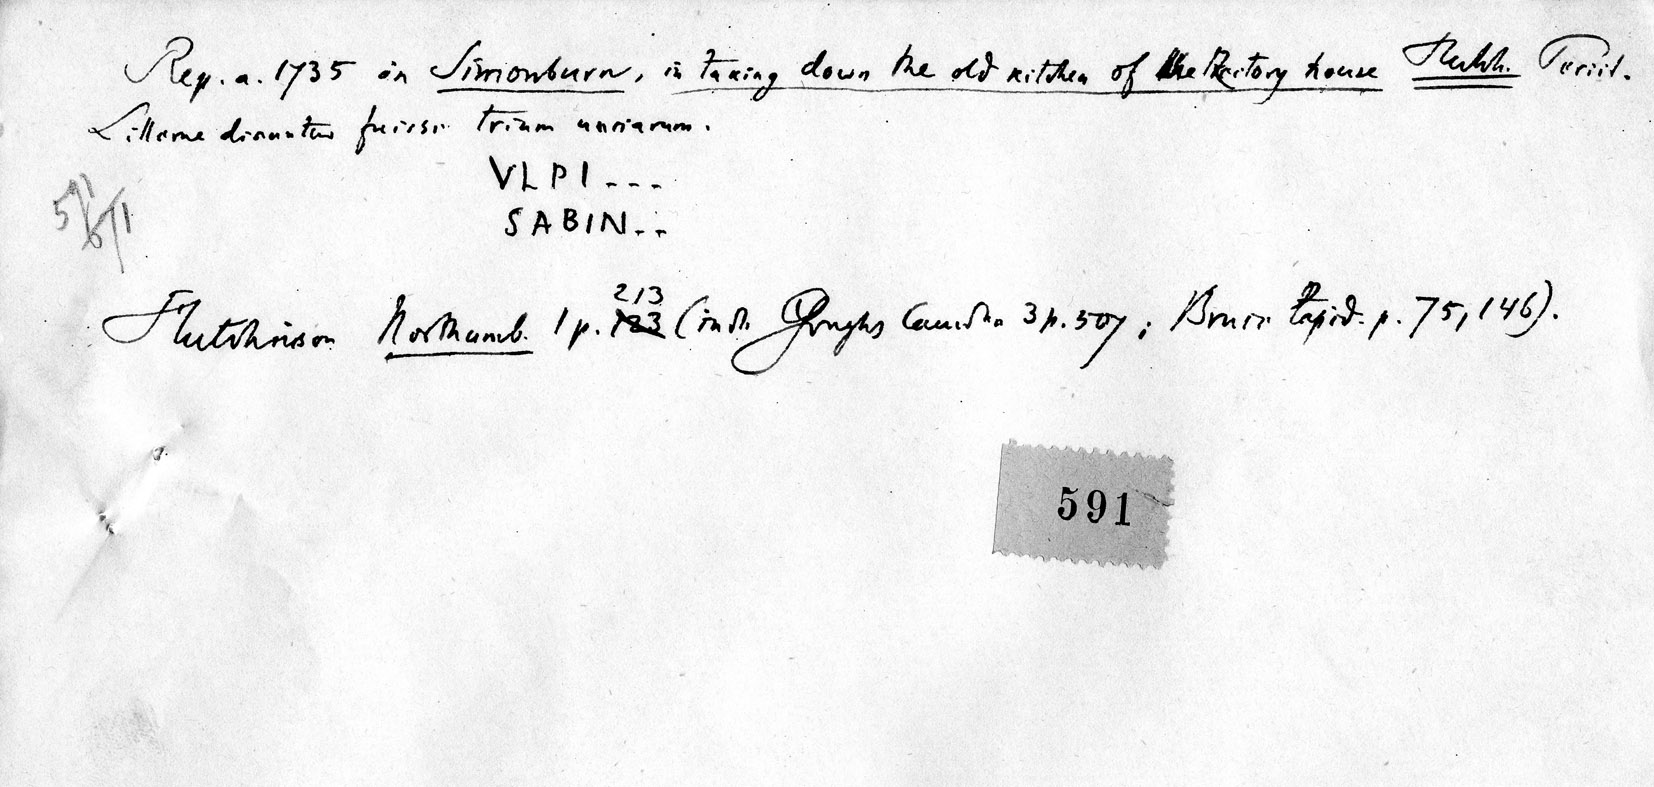 Rep. a. 1735 in Simonburn, in taking down the old kitchen of the Rectory house Hutch. Periit.
Litterae dicuntur fuisse trium unciarum.
VLPI...
SABIN..
Hutchinson Northumb. 1 p. 213 (inde Goughs Camden 3 p. 507; Bruce Lapid. p. 75, 146).
591